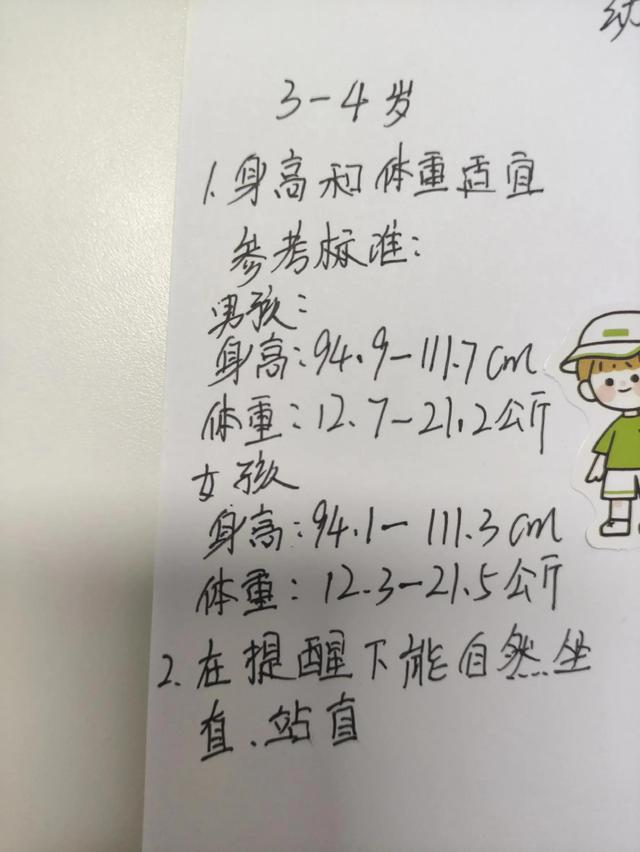 3-4岁
1.身高和体重适宜
参考标准:
男孩:
身高:94.9-111.7cm
体重:12.7-21.2公斤
女孩
身高:94.1-111.3cm
体重:12.3-21.5公斤
2.在提醒下能自然坐
直、站直